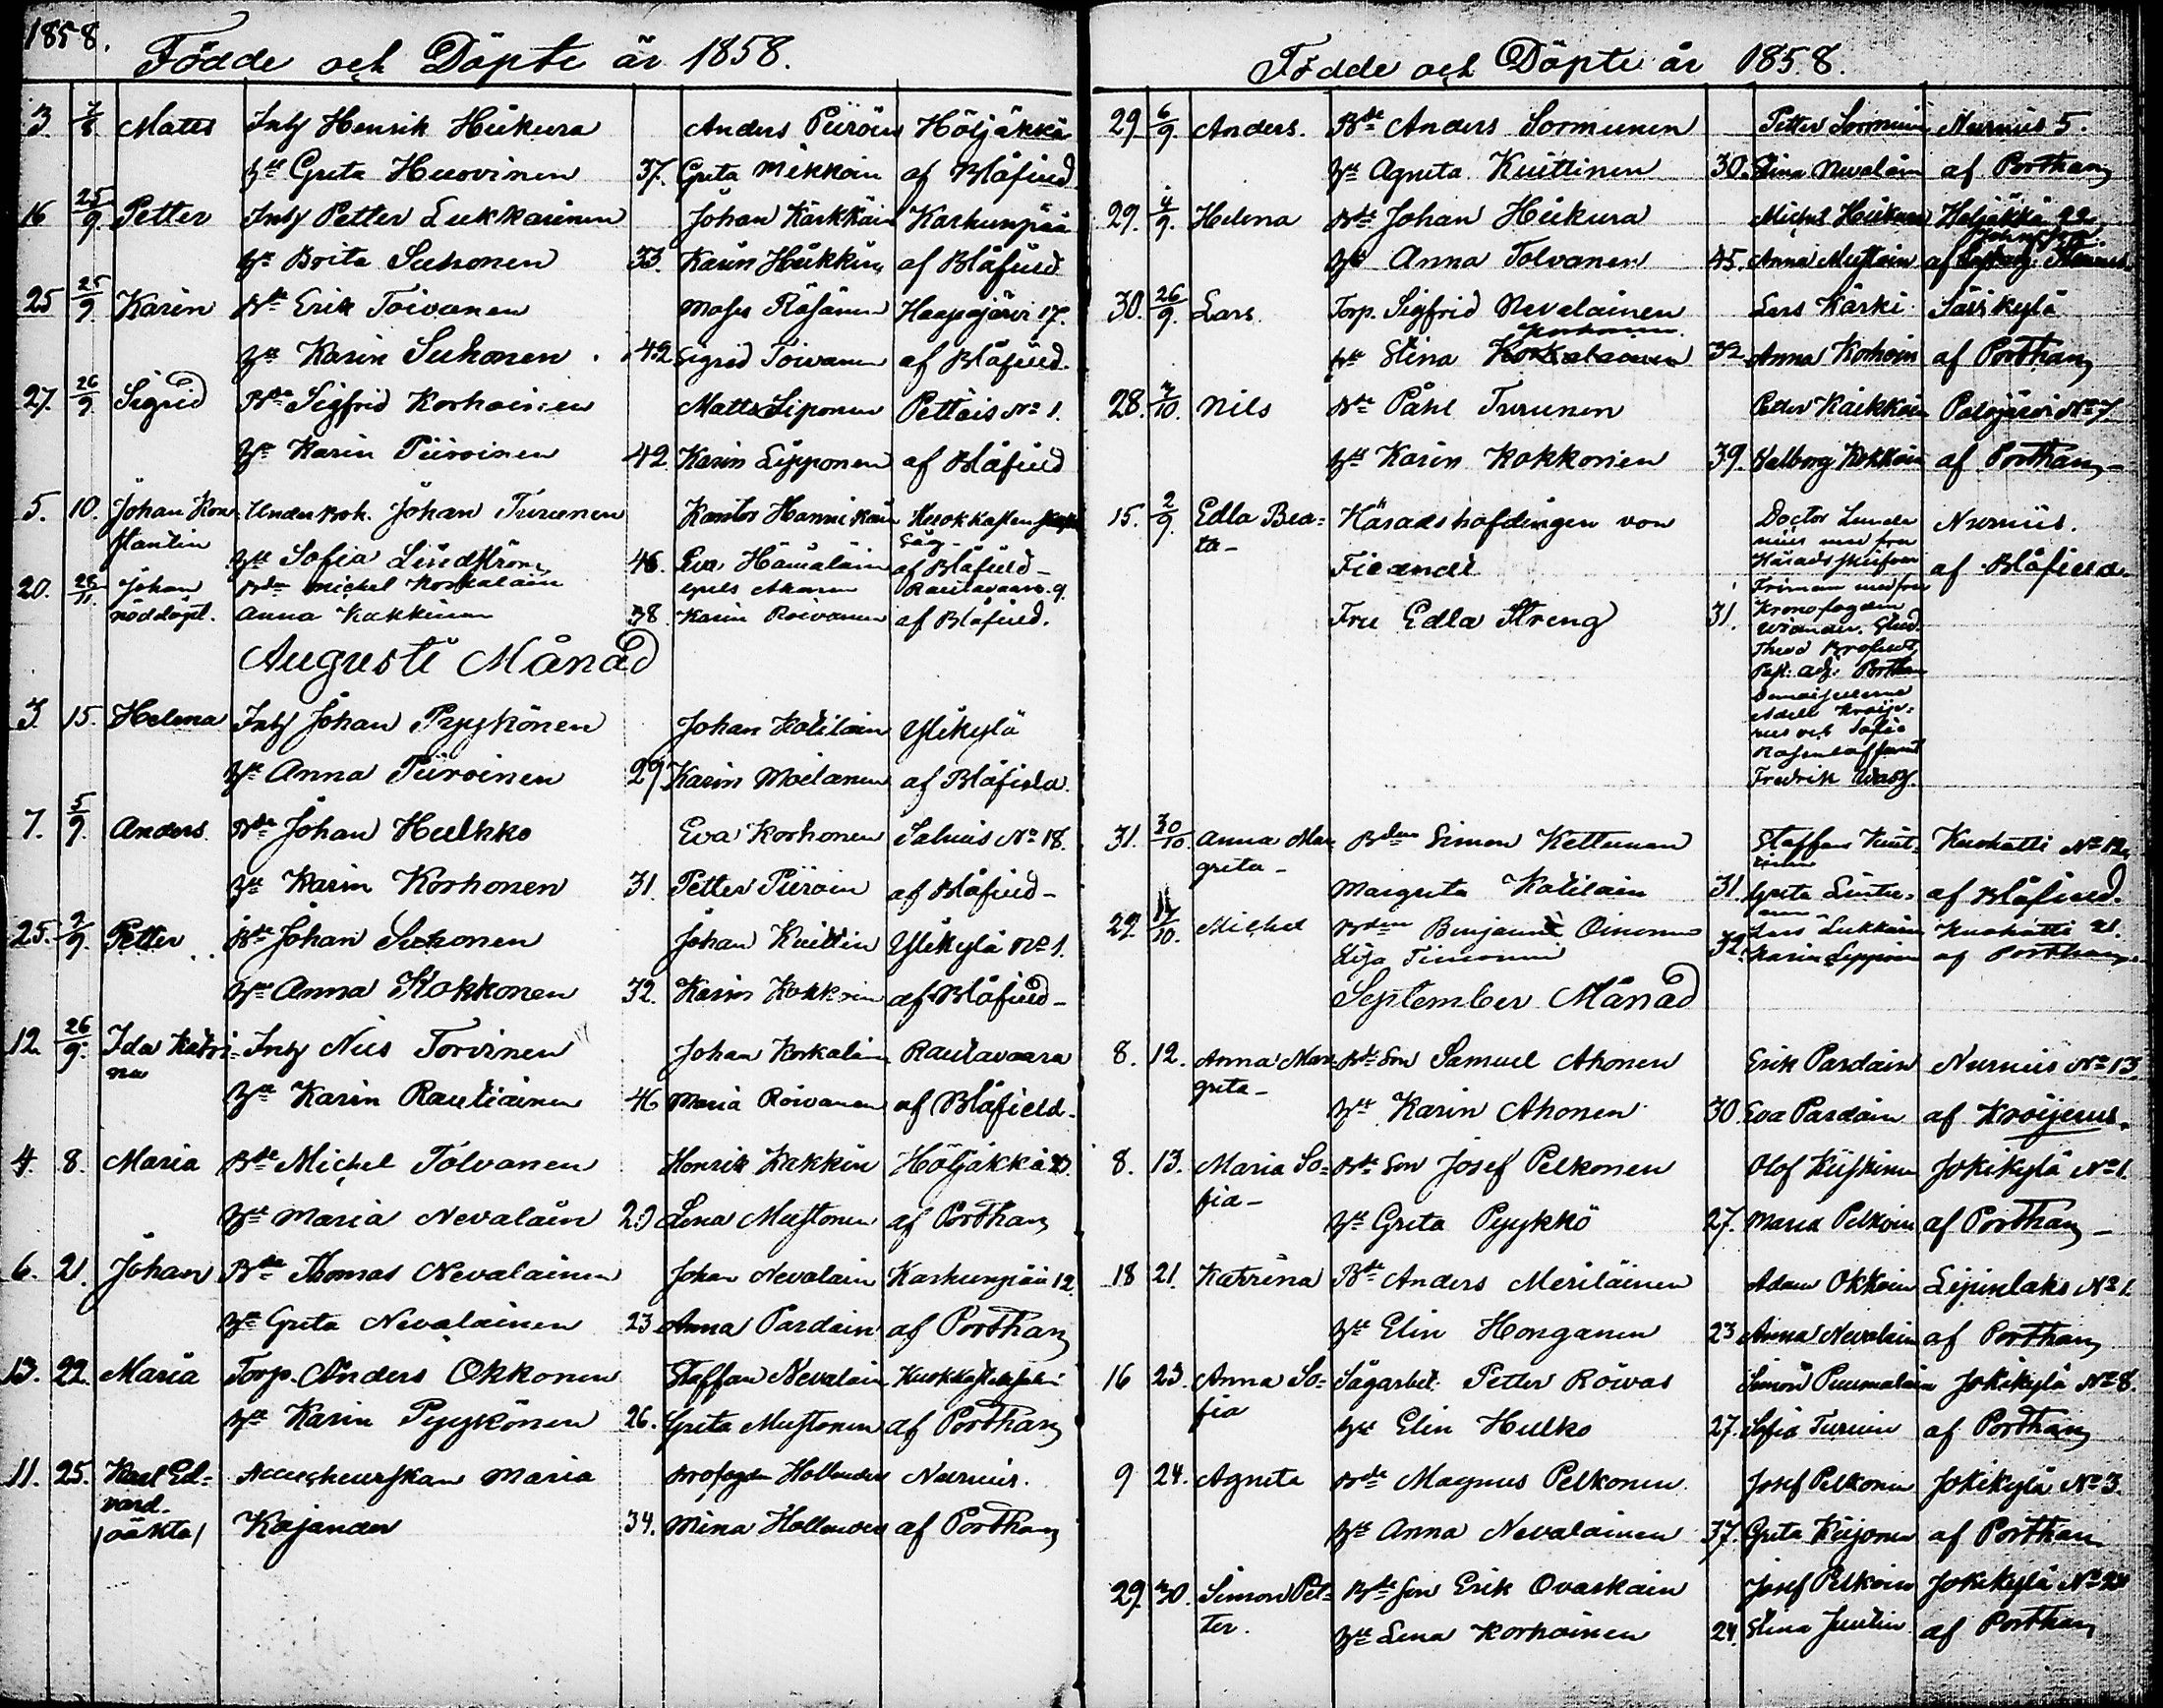 1858.
Födde och Döpte år 1858.
3. 7/8 Matts Inhs Henrik Heikura Anders Piiroin Höljäkkä
Hu Greta Huovinen 37. Greta Mikkoin af Blåfield
16 25/9 Petter Inhs Petter Lukkarinen Johan Kärkkäin Karhunpää
Hu Brita Suhonen 33. Karin Heikkin af Blåfield
25 25/9 Karin Bde Erik Toivanen Moses Räsänen Haapajärvi 17.
Hu Karin Suhonen 42 Sigrid Toivanen af Blåfield.
27. 26/9 Sigrid Bde Sigfrid Korhoinen Matts Liponen Pettäis No 1.
Hu Karin Piiroinen 42 Karin Lipponen af Blåfield
5. 10. Johan Kon- Underbok. Johan Turunen Kantor Hannikäin Kuokkasten
stantin Såg-
Hu Sofia Lindström 46. Eva Hämäläin af Blåfield-
20. 28/11. Johan Bdn Michel Korkalain Nils Ahonen Rautavaara. 9.
nöddöpt. Anna Kakkinen 38. Karin Roivanen af Blåfield.
Augusti Månad
3 15. Helena Inhs Johan Pyykönen Johan Kotilain Ylikylä
Hu Anna Piiroinen 29 Karin Moilanen af Blåfield.
7. 5/9. Anders Bde Johan Hulkko Eva Korhonen Salmis No 18.
Hu Karin Korhonen 31. Petter Piiroin af Blåfield-
25. 2/9. Petter Bde Johan Suhonen Johan Kuittin Ylikylä No 1.
Hu Anna Kokkonen 32. Karin Kokkoin af Blåfield-
12. 26/9. Ida Katri- Inhs Nils Torvinen Johan Korkalain Rautavaara
na
Hu Karin Rautiainen 46 Maria Roivanen af Blåfield.
4. 8. Maria Bde Michel Tolvanen Henrik Kakkin Höljäkkä
Hu Maria Nevalain Lena Mustonen af Porthan
6. 21. Johan Bde Thomas Nevalainen Johan Nevalain Karhunpää 12.
Hu Greta Nevalainen 23 Anna Pardain af Porthan
13. 22. Maria Torp. Anders Okkonen Staffan Nevalain
Hu Karin Pyykönen 26. Greta Mustonen af Porthan
11. 25. Karl Ed- Accucheurskan Maria Hollender Nurmis.
vard.
/oäkta/ Kajander 34. Mina Hollender af Porthan
Födde och Döpte år 1858.
29 6/9. Anders. Bde Anders Sormunen Petter Sormuin Nurmis 5.
Hu Agneta Kuittinen 30. Stina Nevalain af Porthan
29. 4/9. Helena Bde Johan Heikura Michel Heikura Höljäkkä 22.
Hu Anna Tolvanen 45. Anna Mustoin af
30. 26/9. Lars. Torp. Sigfrid Nevalainen Lars Kärki Särkikylä
Korhonen
Hu Stina Korkalainen 32 Anna Korhoin af Porthan
28. 3/10. Nils Bde Påhl Turunen Petter Kärkkäin Palojärvi No 7.
Hu Karin Kokkonen 39. Valborg Kokkoin af Porthan-
15. 2/9. Edla Bea- Häradshöfdingen von Doctor Nurmis.
ta-
Fieandt af Blåfield.
Fru Edla Streng 31. Kronofogden
Past. adj. Porthan
Fredrik Wasz.
31. 30/10. Anna Mar- Bden Simon Kettunen Staffan Kuit- Kuohatti No 12.
greta- tinen
Margreta Kotilain 31. Greta af Blåfield.
29 Michel Bden Benjamin Oinonen Lars Lukkarin Kuohatti 21.
Lisa Timonen 32. Karin Lippoin af Porthan
September Månad
8. 12. Anna Mar- Bde Son Samuel Ahonen Erik Pardain Nurmis No 13.
greta-
Hu Karin Ahonen 30. Eva Pardain af Kroijerus.
8. 13. Maria So- Bde Son Josef Pelkonen Olof Kiiskinen Jokikylä No 1.
fia-
Hu Greta Pyykkö 27. Maria Pelkoin af Porthan-
18 21. Katrina Bde Anders Meriläinen Adam Okkoin Lipinlaks No 1.
Hu Elin Honganen 23 Anna Nevalain af Porthan
16 23. Anna So- Sågarbet. Petter Roivas Simon Puumalain Jokikylä No 8.
fia
Hu Elin Hulko 27. Sofia Turuin af Porthan
9 24. Agneta Bde Magnus Pelkonen Josef Pelkonen Jokikylä No 3
Hu Anna Nevalainen 37. Greta Kuijonen af Porthan
29. 30. Simon Pet- Bde Son Erik Ovaskain Josef Pelkoin Jokikylä
ter.
Hu Lena Korhoinen 24. Stina Juutin af Porthan